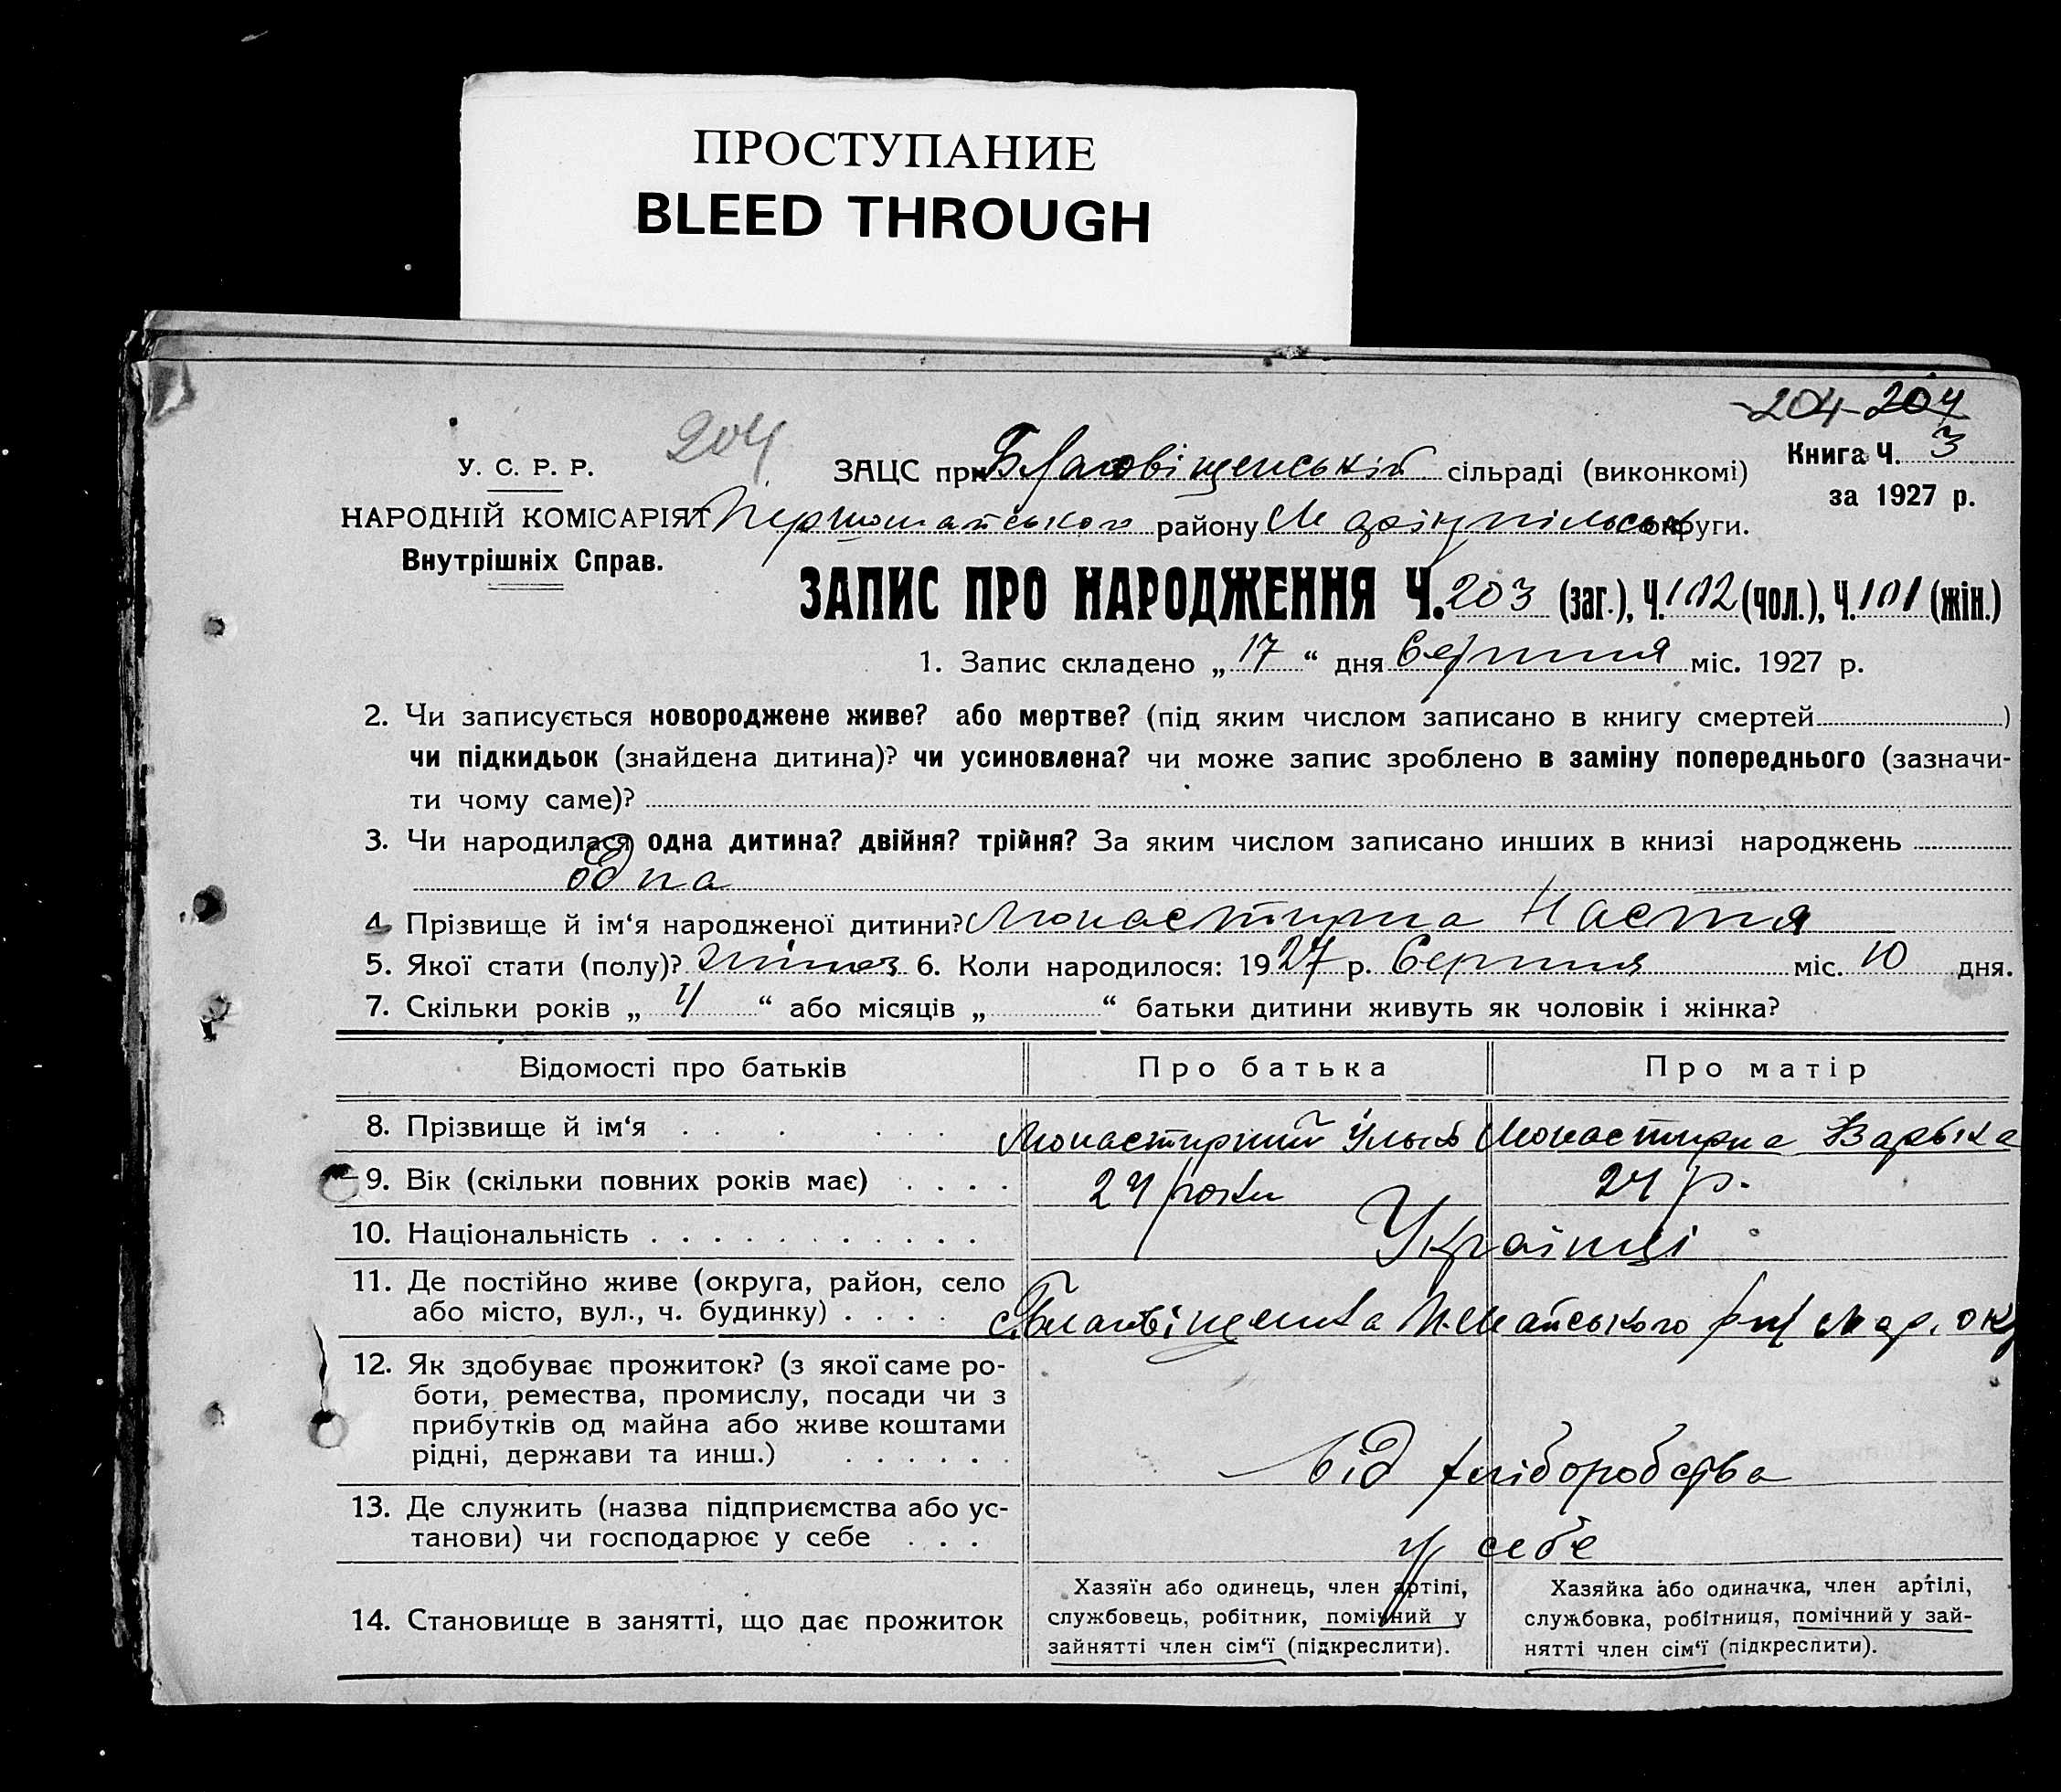 ПРОСТУПАНИЕ
BLEED THROUGH
-204- 204
204
У. С. Р. Р.
НАРОДНІЙ КОМІСАРІЯТ
Внутрішніх Справ.
ЗАЦС при Благовіщенській сільраді (виконкомі)
Книга Ч. 3
за 1927 р.
Першомайського району Маріупільськ округи.
ЗАПИС ПРО НАРОДЖЕННЯ Ч. 203 (заг.), Ч. 102 (чол.), Ч. 101 (жін.)
1. Запис складено „ 17 “ дня Серпня міс. 1927 р.
2. Чи записується новороджене живе? або мертве? (під яким числом записано в книгу смертей )
чи підкидьок (знайдена дитина)? чи усиновлена? чи може запис зроблено в заміну попереднього (зазначи-
ти чому саме)?
3. Чи народилася одна дитина? двійня? трійня? За яким числом записано инших в книзі народжень
одна
4. Прізвище й ім‘я народженої дитини? Монастирна Настя
5. Якої стати (полу)? 6. Коли народилося: 1927 р. Серпня міс. 10 дня.
7. Скільки років „ 4 “ або місяців „ “ батьки дитини живуть як чоловік і жінка?
Відомості про батьків Про батька Про матір
8. Прізвище й ім‘я . . . . . . Монастирний Улько Монастирна Варька
9. Вік (скільки повних років має) . . . . 24 роки 24 р.
10. Національність . . . . . . . . . . . . Українці
11. Де постійно живе (округа, район, село
або місто, вул., ч. будинку) . . . . с. Благовіщенка П.Майського р-ну Мар. окр
12. Як здобуває прожиток? (з якої саме ро-
боти, ремества, промислу, посади чи з
прибутків од майна або живе коштами
рідні, держави та инш.) . . . . . . Від хліборобства
13. Де служить (назва підприємства або ус-
танови) чи господарює у себе . . . у себе
14. Становище в занятті, що дає прожиток
Хазяїн або одинець, член артілі,
службовець, робітник, помічний у
зайнятті член сім‘ї (підкреслити).
Хазяйка або одиначка, член артілі,
службовка, робітниця, помічний у зай-
нятті член сім‘ї (підкреслити).